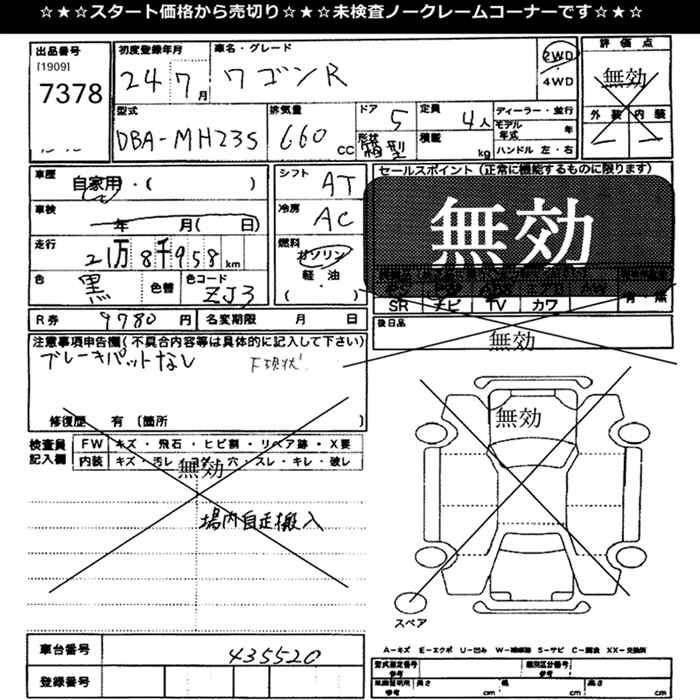 ☆★☆スタート価格から売切り☆★☆未検査ノークレームコーナーです☆★☆
出品番号
[1909]
7378
初度登録年月
24年7月
車名・グレード
ワゴンR
2WD
・
4WD
評価点
無効
外装 内装
型式
DBA-MH23S
排気量
660 CC
ドア 5
形状 箱型
定員 4人
積載 kg
ディーラー・並行
モデル年式 年
ハンドル 左・右
車歴
自家用・( )
車検
年 月( 日)
走行
21万8千958km
色
黒
色替
色コード
ZJ3
シフト
AT
冷房
AC
燃料
ガソリン
軽・油
( )
セールスポイント (正常に機能するものに限ります)
無効
SR ナビ TV カワ 有・無
後日品
無効
R券 9780円 名変期限 月 日
注意事項申告欄(不具合内容等は具体的に記入して下さい)
ブレーキパットなし
下現状
修復歴 有 〔箇所 〕
検査員記入欄
FW キズ・飛石・ヒビ割・リペア跡・X要
内装 キズ・汚レ・コゲ・穴・スレ・キレ・破レ
無効
場内自走搬入
無効
スペア
A-キズ E-エクボ U-凹み W-補修跡 S-サビ C-腐食 XX-交換済
車台番号
435520
登録番号
型式指定番号 参考
類別区分番号 参考
車庫証明用 参考
長さ cm
幅 cm
高さ cm